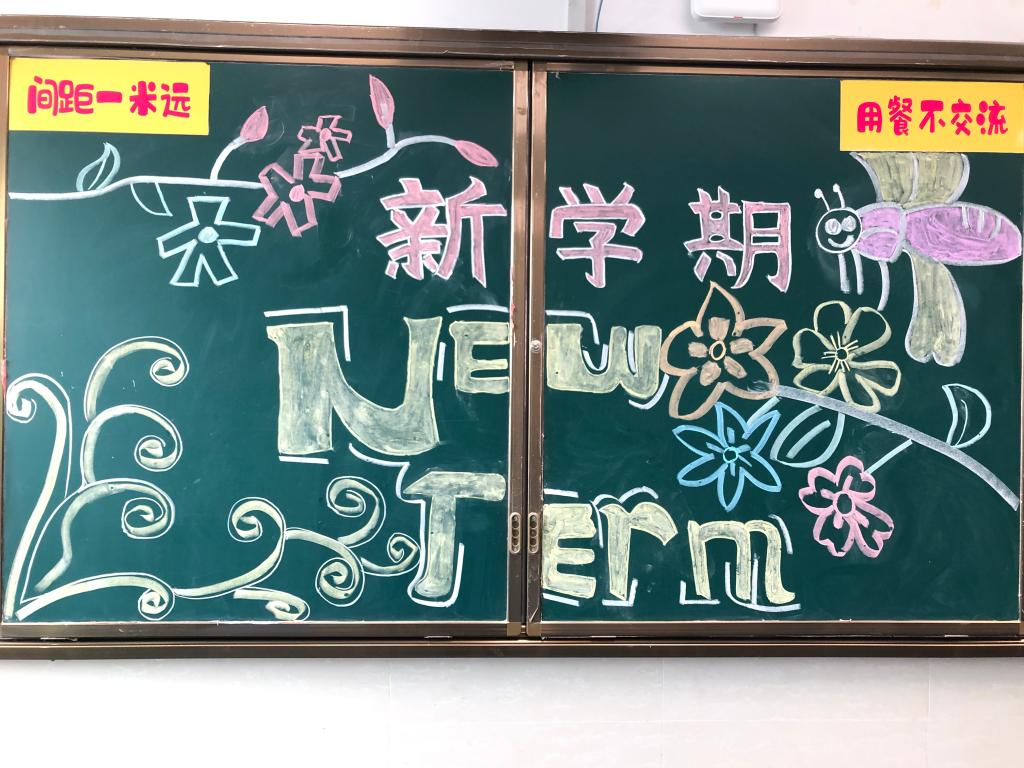 间距一米远
用餐不交流
新学期
New
Term